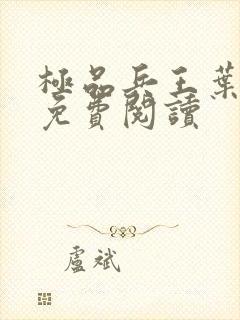 極品兵王葉
免費閱讀
盧斌